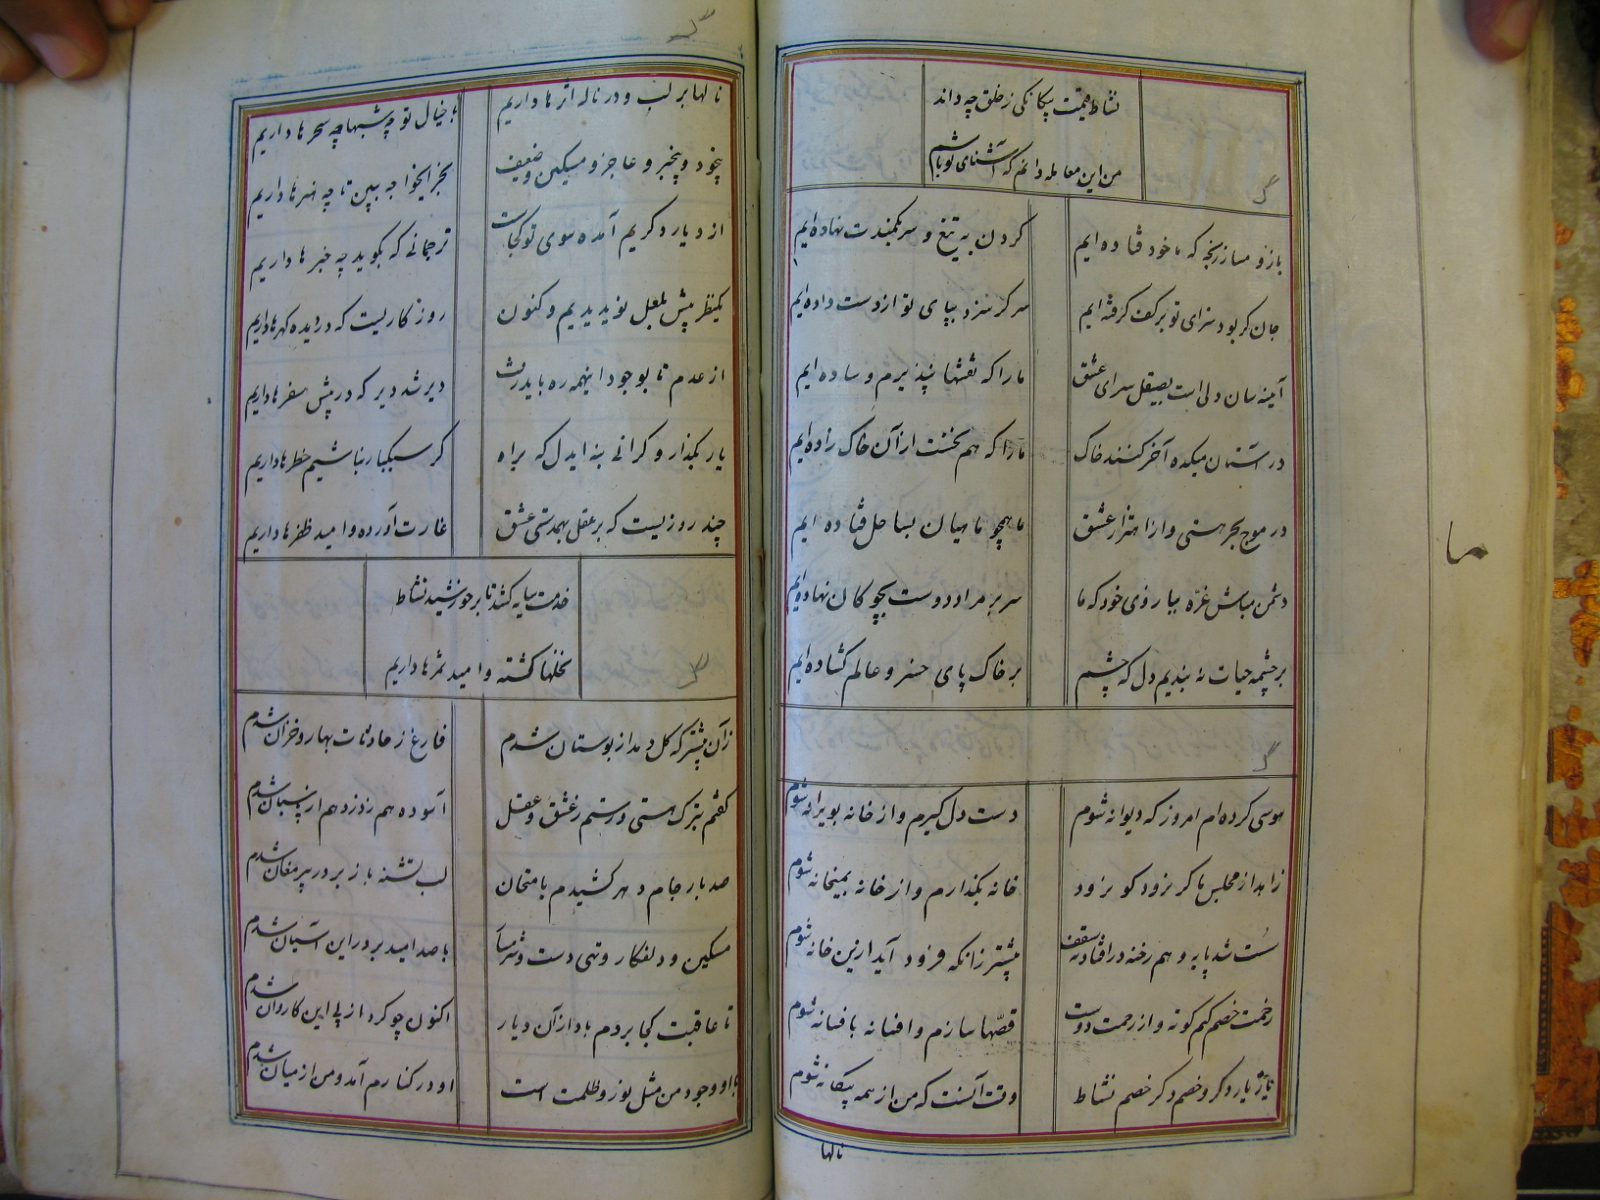 نشاط قیمت بیگانگی ز خلق چه داند
من این معامله دانم که آشنای تو باشم
بازو مساز رنجه که ما خود فتاده ایم گردن به تیغ و سر بکمندت نهاده ایم
جان گر بود سزای تو بر کف گرفته ایم سر گر سزد بپای تو از دست داده ایم
آینه سان دلی است بصیقل سرای عشق ما را که نقشها نپذیرم و ساده ایم
در آستان میکده آخر کنند خاک ما را که هم نخست از آن خاک زاده ایم
در موج بحر هستی و از اهتزاز عشق ما همچو ماهیان بساحل فتاده ایم
دشمن مباش غرّه ببازوی خود که ما سر بر مراد دوست بچوگان نهاده ایم
بر چشمه حیات نه بندیم دل که چشم بر خاک پای خسرو عالم گشاده ایم
هوسی کرده ام امروز که دیوانه شوم دست دل گیرم و از خانه بویرانه شوم
زاهد از مجلس ما گر نرود گو نرود خانه بگذارم و از خانه بمیخانه شوم
سست شد پایه و هم رخنه در افتاد بسقف پیشتر زانکه فرود آید ازین خانه شوم
زحمت خصم کنم کوته و از رحمت دوست قصّها سازم و افسانه بافسانه شوم
یار یار دگر و خصم دگر خصم نشاط وقت آنست که من از همه بیگانه شوم
نالها
نالها بر لب و در ناله اثرها داریم با خیال تو چه شبها چه سحرها داریم
بیخود و بیخبر و عاجز و مسکین و ضعیف بخر ایخواجه ببین تا چه هنرها داریم
از دیار دگریم آمده سوی تو کجاست ترجمانی که بگوید چه خبرها داریم
یکنظر پیش بلعل تو ندیدیم و کنون روزگاریست که در دیده گهرها داریم
از عدم تا بوجود اینهمه ره باید رفت دیر شد دیر که در پیش سفرها داریم
بار بگذار و گرانی بنه ایدل که براه گر سبکبار نباشیم خطرها داریم
چند روزیست که بر عقل بهمدستی عشق غارت آورده و امید ظفرها داریم
خدمت سایه کشد تا بر خورشید نشاط
نخلها کشته و امید ثمرها داریم
زآن پیشتر که گل دمد از بوستان شدم فارغ ز حادثات بهار و خزان شدم
گفتم بترک هستی و رستم ز عشق و عقل آسوده هم ز دزد و هم از پاسبان شدم
صد بار جام دهر کشیدم بامتحان لب تشنه باز بر در پیر مغان شدم
مسکین و دلفکار و تهی دست و شرمسار با صد امید بر در این آستان شدم
تا عاقبت کجا بردم باد از آن دیار اکنون چو گرد از پی این کاروان شدم
با او وجود من مثل نور و ظلمت است او در کنارم آمد و من از میان شدم